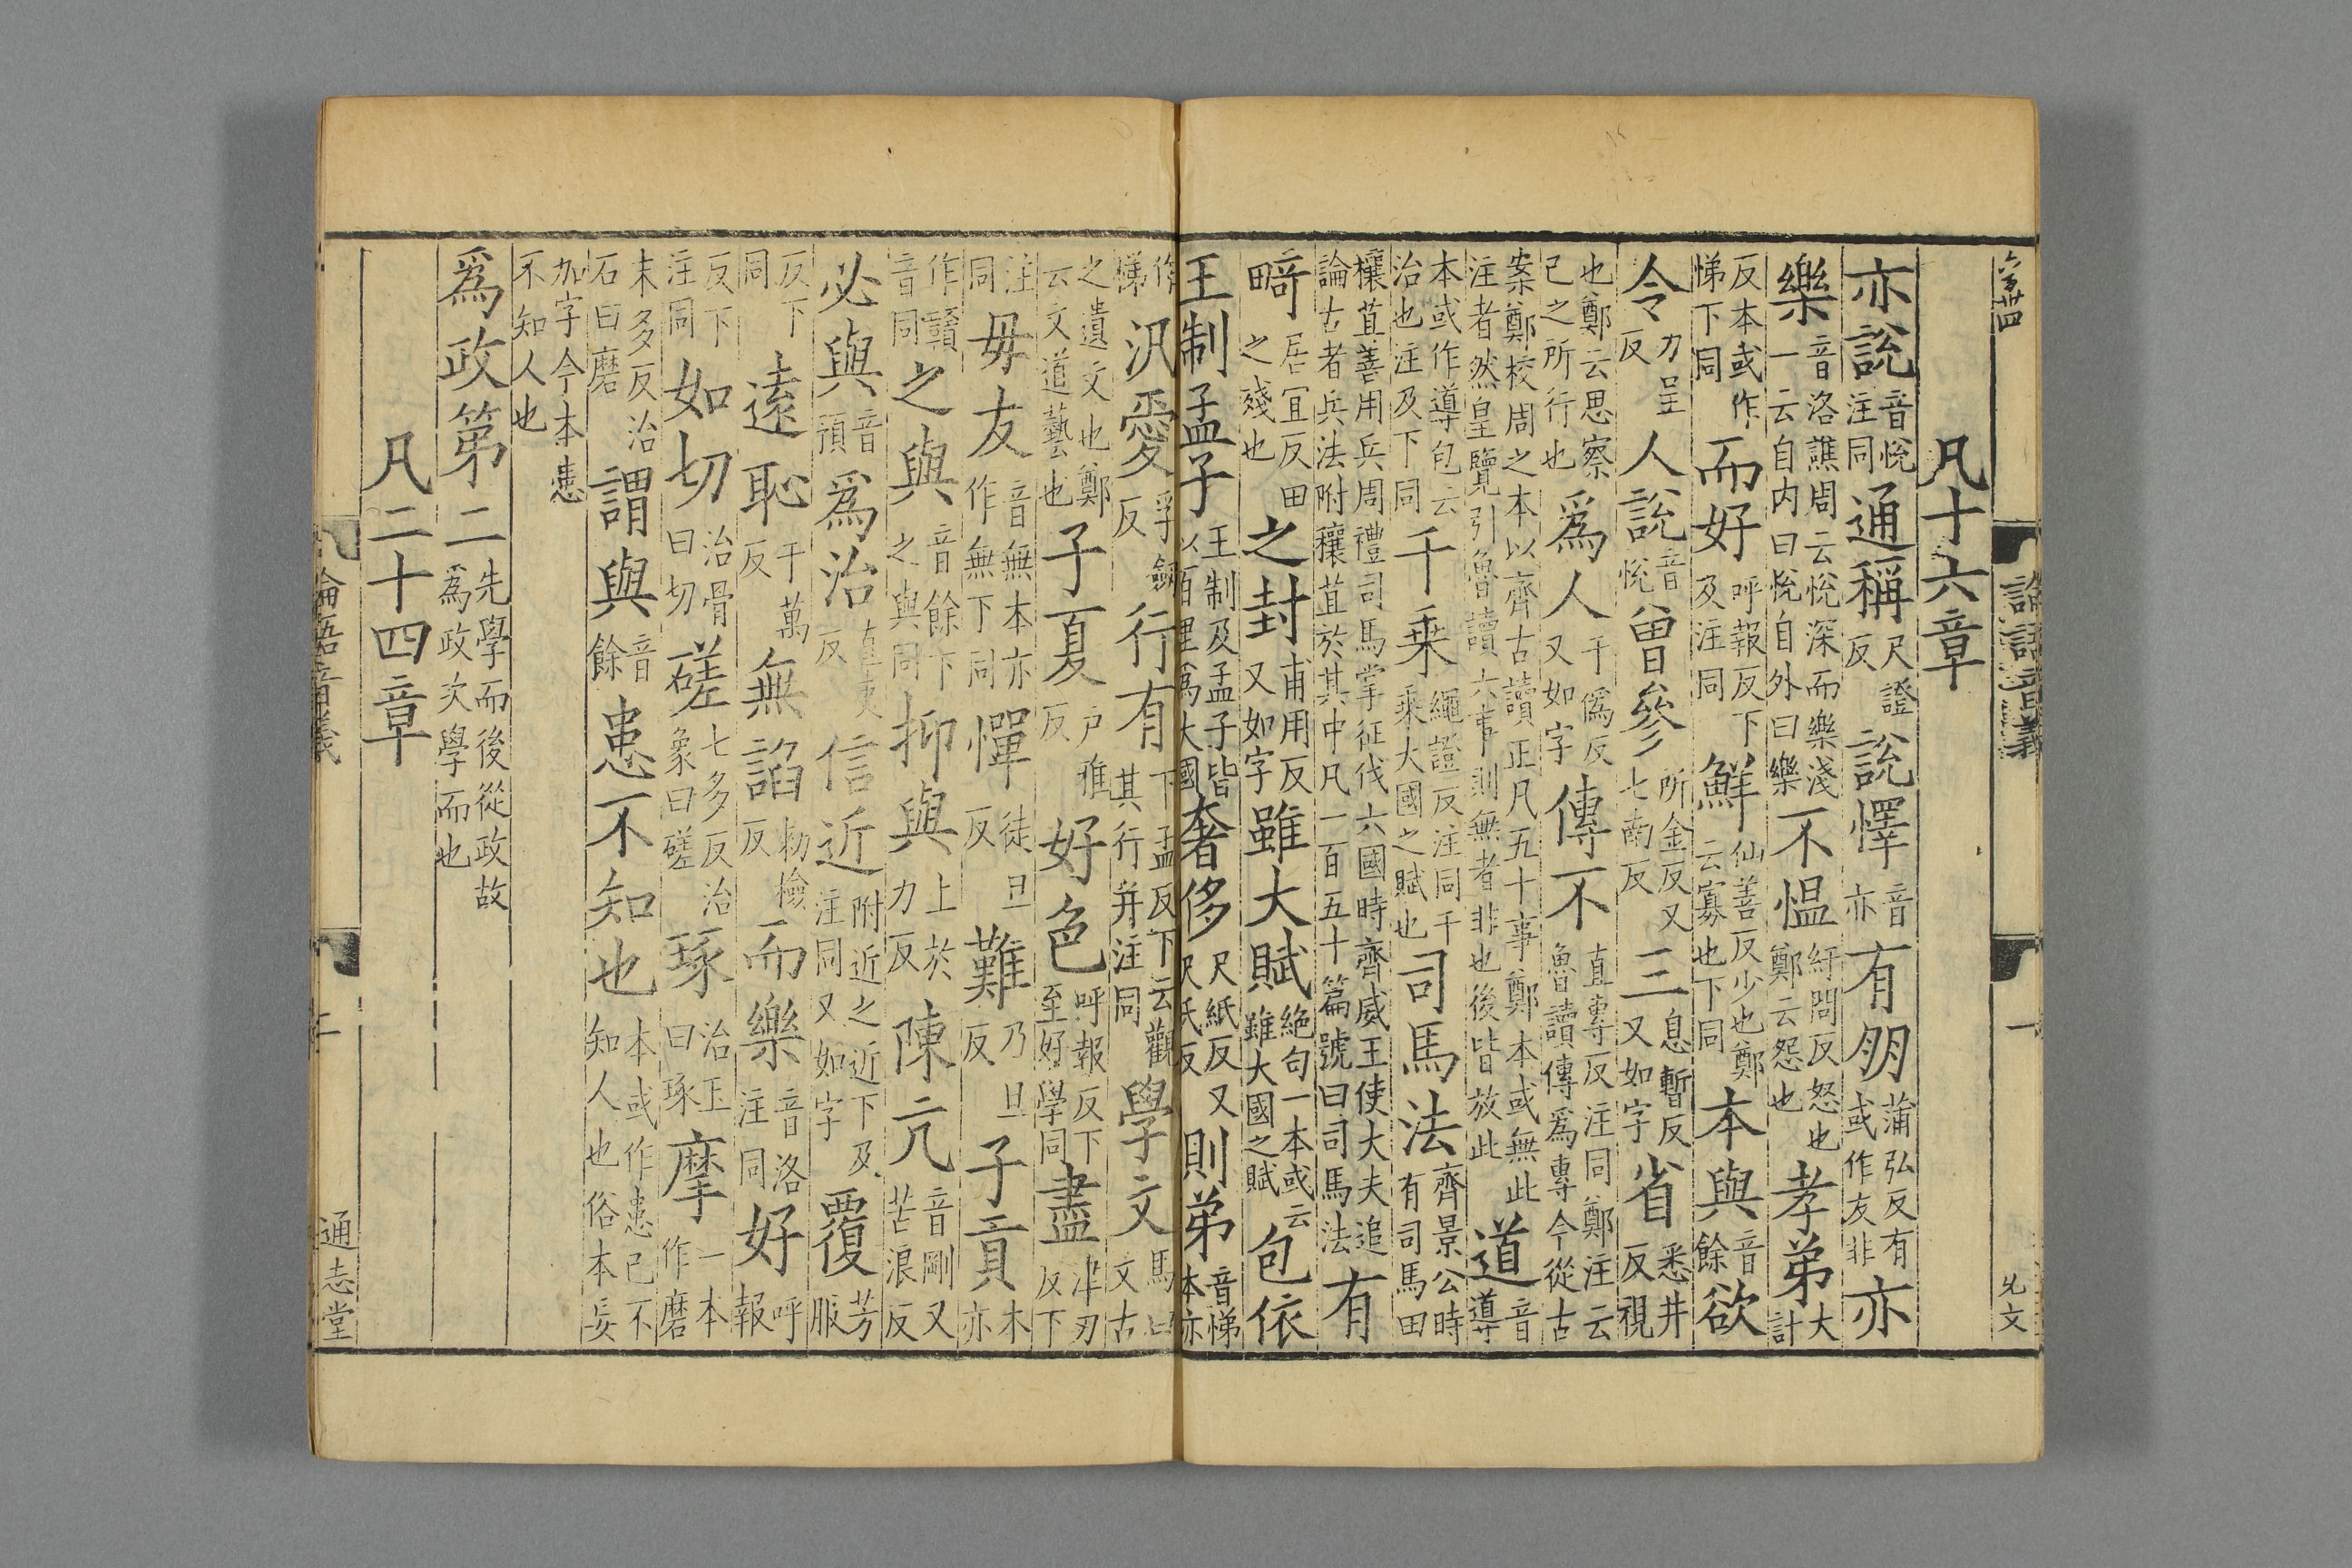 論語音義 一
凡十六章
亦說音悅注同通稱尺證反說懌音亦有朋蒲弘反有或作友非亦
樂音洛譙周云悅深而樂淺一云自內曰悅自外曰樂不慍紆問反怒也鄭云怨也孝弟大計
反本或作悌下同而好呼報反下及注同鮮仙善反少也鄭云寡也下同本與音餘欲
令力呈反人說音悅曾參所金反又七南反三息暫反又如字省悉井反視
也鄭云思察己之所行也爲人于僞反又如字傳不直專反注同鄭注云魯讀傳爲專今從古
案鄭校周之本以齊古讀正凡五十事鄭本或無此注者然皇覽引魯讀六事則無者非也後皆放此道音導
本或作導包云治也注及下同千乗繩證反注同千乗大國之賦也司馬法齊景公時有司馬田
穰苴善用兵周禮司馬掌征伐六國時齊威王使大夫追論古者兵法附穰苴於其中凡一百五十篇號曰司馬法有
畸居宜反田之殘也之封甫用反又如字雖大賦絕句一本或云雖大國之賦包依
王制孟子王制及孟子皆以百里爲大國奢侈尺紙反又尺氏反則弟音悌本亦
作悌汎愛孚劔反行有下孟反下云觀其行并注同學文馬曰文古
之遺文也鄭云文道藝也子夏戶雅反好色呼報反下至好學同盡津刃反下
注同毋友音無本亦作無下同憚徒旦反難乃旦反子貢本亦
作贛音同之與音餘下之與同抑與上於力反陳亢音剛又苦浪反
必與音預爲治直吏反信近附近之近下及注同又如字覆芳服
反下同遠恥于萬反無諂勑檢反而樂音洛注同好呼報
反下注同如切治骨曰切磋七多反治象曰磋琢治玉曰琢摩一本作磨
末多反治石曰磨謂與音餘患不知也本或作患己不知人也俗本妄
加字今本患不知人也
爲政第二先學而後從政故爲政次學而也
凡二十四章
論語音義 通志堂